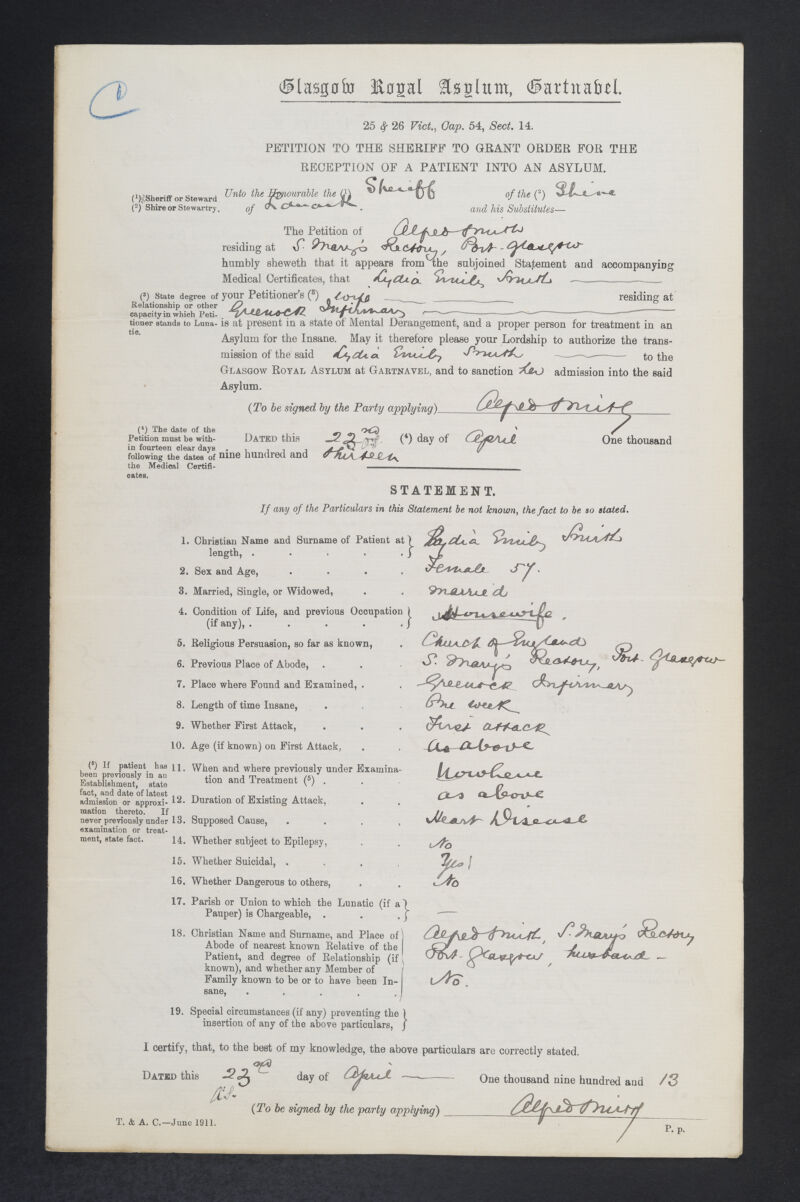 Glasgow Royal Asylum, Gartnabel.
25 & 26 Vict., Cap. 54, Sect. 14.
PETITION TO THE SHERIFF TO GRANT ORDER FOR THE
RECEPTION OF A PATIENT INTO AN ASYLUM.
(1) Sheriff or Steward
(2) Shire or Stewartry.
Unto the Honourable the (1) Sheriff of the (2) Shire
of Lanark. and his Substitutes—
The Petition of Alfred Smith
residing at S. Mary's Rectory, Port-Glasgow
humbly sheweth that it appears from the subjoined Statement and accompanying
Medical Certificates, that Lydia Emily Smith
(3) State degree of
Relationship or other
capacity in which Peti-
tioner stands to Luna-
tic.
your Petitioner's (3) wife residing at
Greenock Infirmary
is at present in a state of Mental Derangement, and a proper person for treatment in an
Asylum for the Insane. May it therefore please your Lordship to authorize the trans-
mission of the said Lydia Emily Smith to the
GLASGOW ROYAL ASYLUM at GARTNAVEL, and to sanction her admission into the said
Asylum.
(To be signed by the Party applying) Alfred Smith
(4) The date of the
Petition must be with-
in fourteen clear days
following the dates of
the Medical Certifi-
cates.
DATED this 23rd (4) day of April One thousand
nine hundred and thirteen
STATEMENT.
If any of the Particulars in this Statement be not known, the fact to be so stated.
1. Christian Name and Surname of Patient at
length, . . . . . Lydia Emily Smith
2. Sex and Age, . . . . Female 57.
3. Married, Single, or Widowed, . . married
4. Condition of Life, and previous Occupation
(if any), . . . . . Housewife.
5. Religious Persuasion, so far as known, . Church of England
6. Previous Place of Abode, . . S. Mary's Rectory, Port-Glasgow
7. Place where Found and Examined, . . Greenock Infirmary
8. Length of time Insane, . . . One week
9. Whether First Attack, . . . First attack
10. Age (if known) on First Attack, . . As above
(5) If patient has
been previously in an
Establishment, state
fact, and date of latest
admission or approxi-
mation thereto. If
never previously under
examination or treat-
ment, state fact.
11. When and where previously under Examina-
tion and Treatment (5) . . Nowhere
12. Duration of Existing Attack, . . as above
13. Supposed Cause, . . . . Heart Disease
14. Whether subject to Epilepsy, . . No
15. Whether Suicidal, . . . . Yes!
16. Whether Dangerous to others, . . No
17. Parish or Union to which the Lunatic (if a
Pauper) is Chargeable, . . . —
18. Christian Name and Surname, and Place of
Abode of nearest known Relative of the
Patient, and degree of Relationship (if
known), and whether any Member of
Family known to be or to have been In-
sane, . . . . .
Alfred Smith, S. Mary's Rectory
Port-Glasgow, husband –
No.
19. Special circumstances (if any) preventing the
insertion of any of the above particulars,
I certify, that, to the best of my knowledge, the above particulars are correctly stated.
DATED this 23rd day of April One thousand nine hundred and 13
A.S.
(To be signed by the party applying) Alfred Smith
T. & A. C.—June 1911.
P. p.